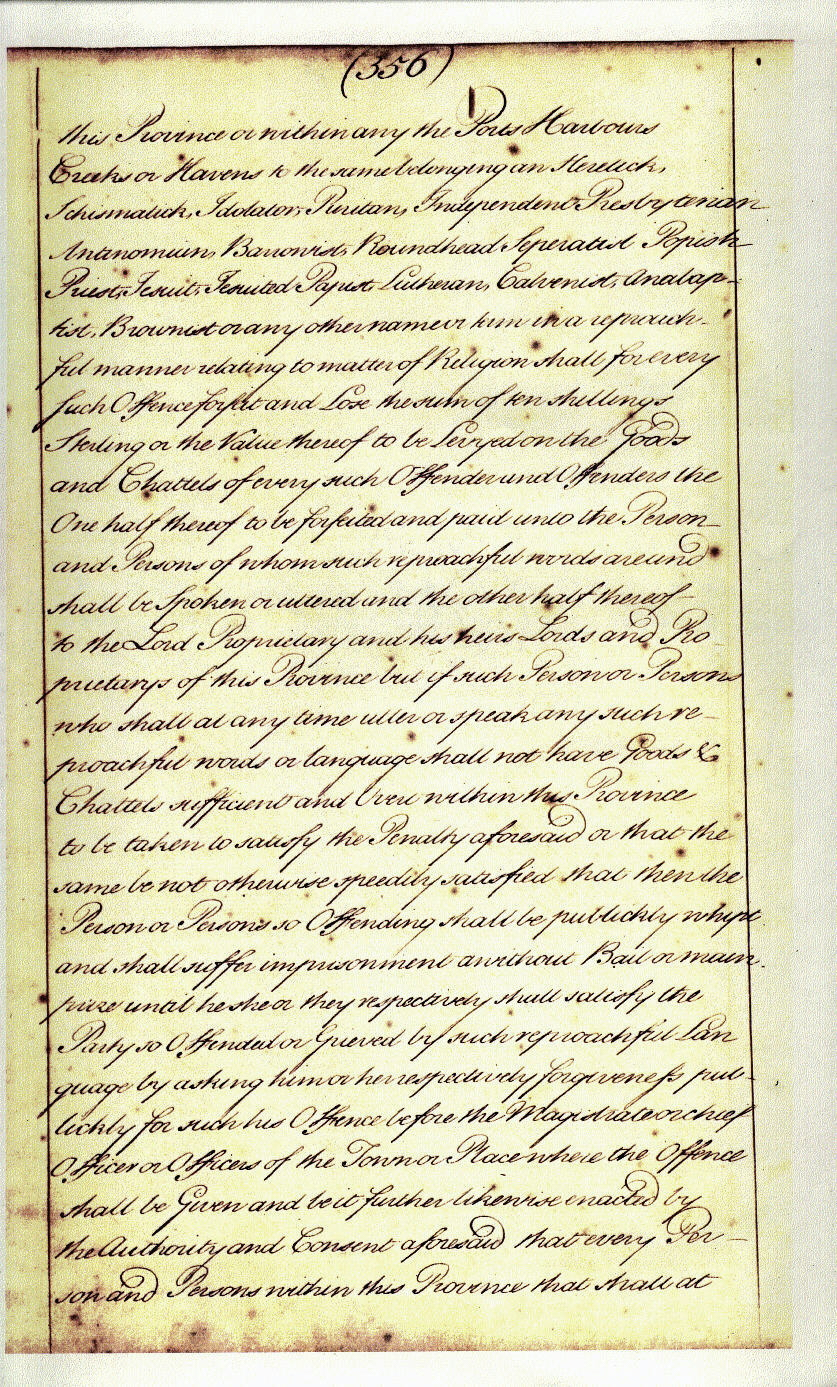 (356)
this Province or within any the Ports Harbours
Creeks or Havens to the same belonging an Heretick,
Schismatick, Idolator, Puritan, Independent Presbyterian
Antinomian, Barrowist, Roundhead Seperatist Popish
Priest, Jesuit, Jesuited Papist Lutheran, Calvenist, Anabap-
tist, Brownist or any other name or term in a reproach-
ful manner relating to matter of Religion shall for every
such Offence forfeit and Lose the sum of ten shillings
Sterling or the Value thereof to be Levyed on the Goods
and Chattels of every such Offender and Offenders the
One half thereof to be forfeited and paid unto the Person
and Persons of whom such reproachful words are and
shall be Spoken or uttered and the other half thereof
to the Lord Proprietary and his heirs Lords and Pro
prietarys of this Province but if such Person or Persons
who shall at any time utter or speak any such re-
proachful words or language shall not have Goods &
Chattels sufficient and Overt within this Province
to be taken to satisfy the Penalty aforesaid or that the
same be not otherwise speedily satisfied that then the
Person or Persons so Offending shall be publickly whipt
and shall suffer imprisonment without Bail or main-
prize until he she or they respectively shall satisfy the
Party so Offended or Grieved by such reproachful Lan
guage by asking him or her respectively forgiveness pub-
lickly for such his Offence before the Magistrate or chief
Officer or Officers of the Town or Place where the Offence
shall be Given and be it further likewise enacted by
the Authority and Consent aforesaid that every Per-
son and Persons within this Province that shall at